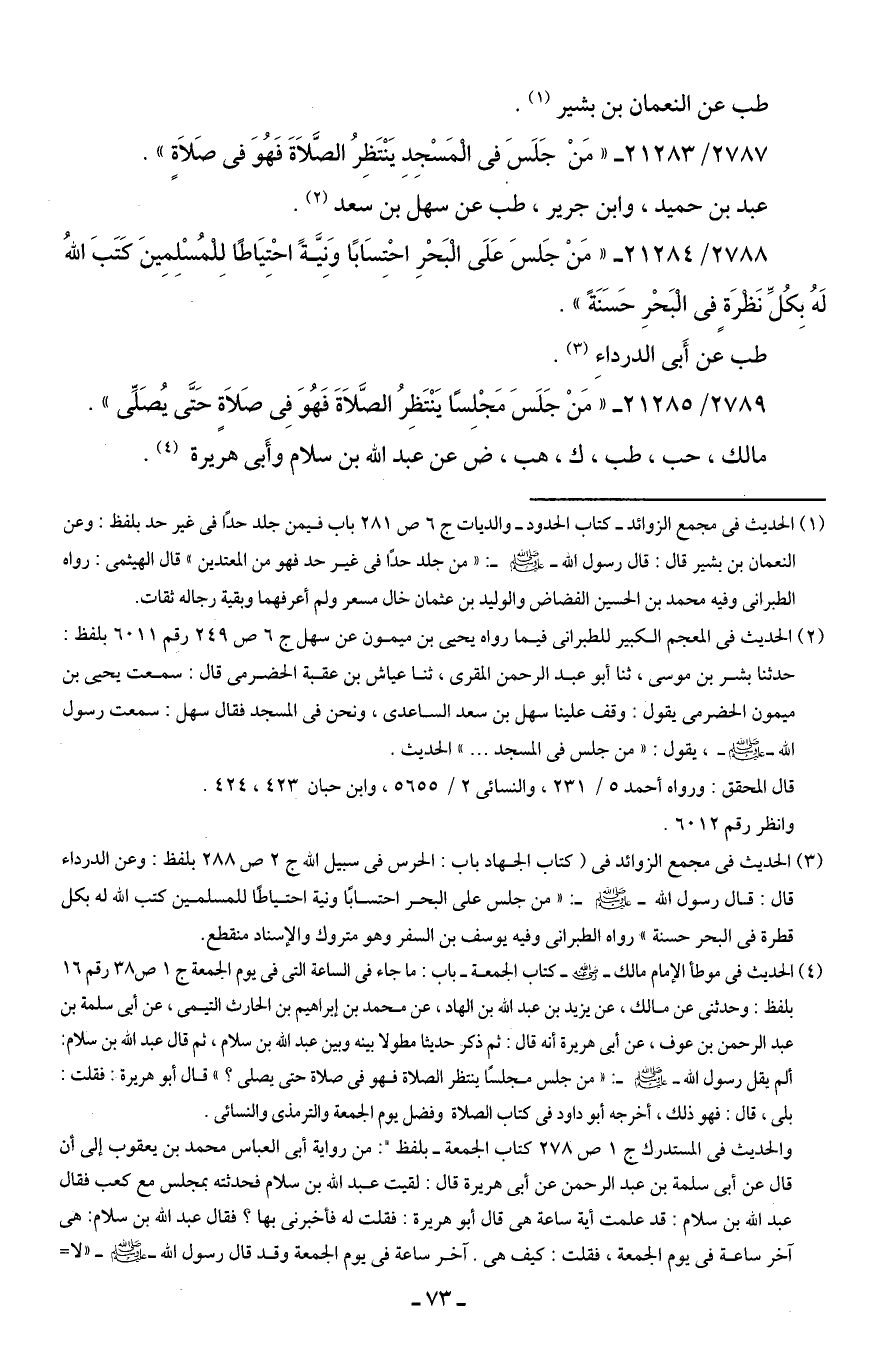 طب عن النعمان بن بشير (١) .
٢١٢٨٣/٢٧٨٧ـ « مَنْ جَلَسَ فى الْمَسْجِدِ يَنْتَظِرُ الصَّلَاةَ فَهُوَ فى صَلَاةٍ » .
عبد بن حميد ، وابن جرير ، طب عن سهل بن سعد (٢) .
٢١٢٨٤/٢٧٨٨ـ « مَنْ جَلسَ عَلَى الْبَحْرِ احْتِسَابًا ونَيَّةً احْتِيَاطًا لِلْمُسْلِمِينَ كَتَبَ اللهُ
لَهُ بِكُلِّ نَظْرَةٍ فِى الْبَحْرِ حَسَنَةً » .
طب عن أَبى الدرداءِ (٣) .
٢١٢٨٥/٢٧٨٩ـ « مَنْ جَلَسَ مَجْلِسًا يَنْتَظِرُ الصَّلَاةَ فَهُوَ فِى صَلَاةٍ حَتَّى يُصَلِّى » .
مالك ، حب ، طب ، ك ، هب ، ض عن عبد الله بن سلام وأَبى هريرة (٤) .
(١) الحديث فى مجمع الزوائد ـ كتاب الحدود ـ والديات ج ٦ ص ٢٨١ باب فيمن جلد حدًا فى غير حد بلفظ : وعن
النعمان بن بشير قال : قال رسول الله ـ ﷺ ـ: « من جلد حدًا فى غير حد فهو من المعتدين » قال الهيثمى : رواه
الطبرانى وفيه محمد بن الحسين الفضاض والوليد بن عثمان خال مسعر ولم أعرفهما وبقية رجاله ثقات.
(٢) الحديث فى المعجم الكبير للطبرانى فيما رواه يحيى بن ميمون عن سهل ج ٦ ص ٢٤٩ رقم ٦٠١١ بلفظ :
حدثنا بشر بن موسى ، ثنا أبو عبد الرحمن المقرى ، ثنا عياش بن عقبة الحضرمى قال : سمعت يحيى بن
ميمون الحضرمى يقول : وقف علينا سهل بن سعد الساعدى ، ونحن فى المسجد فقال سهل : سمعت رسول
الله ـ ﷺ ـ ، يقول : « من جلس فى المسجد ... » الحديث .
قال المحقق : ورواه أحمد ٥ / ٢٣١ ، والنسائى ٢ / ٥٦٥٥ ، وابن حبان ٤٢٣ ، ٤٢٤ .
وانظر رقم ٦٠١٢ .
(٣) الحديث فى مجمع الزوائد فى ( كتاب الجهاد باب : الحرس فى سبيل الله ج ٢ ص ٢٨٨ بلفظ : وعن الدرداء
قال : قال رسول الله ـ ﷺ ـ: « من جلس على البحر احتسابًا ونية احتياطًا للمسلمين كتب الله له بكل
قطرة فى البحر حسنة » رواه الطبرانى وفيه يوسف بن السفر وهو متروك والإسناد منقطع.
(٤) الحديث فى موطأ الإمام مالك ـ رضي الله عنه ـ كتاب الجمعة ـ باب : ما جاء فى الساعة التى فى يوم الجمعة ج ١ ص٣٨ رقم ١٦
بلفظ : وحدثنى عن مالك ، عن يزيد بن عبد الله بن الهاد ، عن محمد بن إبراهيم بن الحارث التيمى ، عن أبى سلمة بن
عبد الرحمن بن عوف ، عن أبى هريرة أنه قال : ثم ذكر حديثا مطولا بينه وبين عبد الله بن سلام ، ثم قال عبد الله بن سلام:
ألم يقل رسول الله ـ ﷺ ـ: « من جلس مجلسًا ينتظر الصلاة فهو فى صلاة حتى يصلى ؟ » قال أبو هريرة : فقلت :
بلى ، قال : فهو ذلك ، أخرجه أبو داود فى كتاب الصلاة وفضل يوم الجمعة والترمذى والنسائى .
والحديث فى المستدرك ج ١ ص ٢٧٨ كتاب الجمعة ـ بلفظ ": من رواية أبى العباس محمد بن يعقوب إلى أن
قال عن أبى سلمة بن عبد الرحمن عن أبى هريرة قال : لقيت عبد الله بن سلام فحدثته بمجلس مع كعب فقال
عبد الله بن سلام : قد علمت أية ساعة هى قال أبو هريرة : فقلت له فأخبرنى بها ؟ فقال عبد الله بن سلام: هى
آخر ساعة فى يوم الجمعة ، فقلت : كيف هى . آخر ساعة فى يوم الجمعة وقد قال رسول الله ـ ﷺ ـ «لا=
ـ ٧٣ ـ